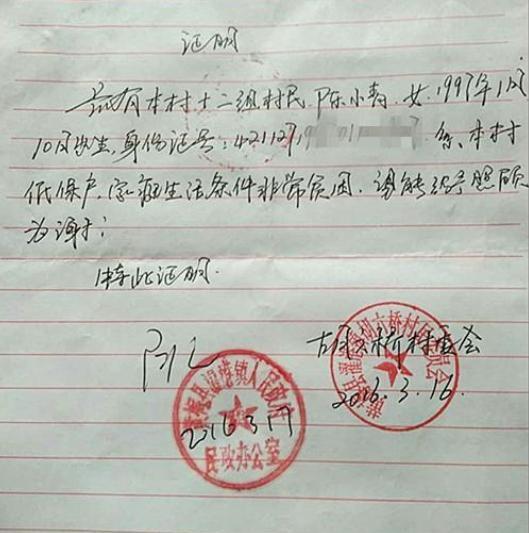 证明
兹有本村十二组村民陈小青，女，1997年1月
10日出生，身份证号：421127199701，系本村
低保户，家庭生活条件非常贫困，请能给予照顾
为谢！
特此证明.
古月六桥村委会
2016.3.16
2016.3.17
黄梅县濯港镇人民政府
民政办公室